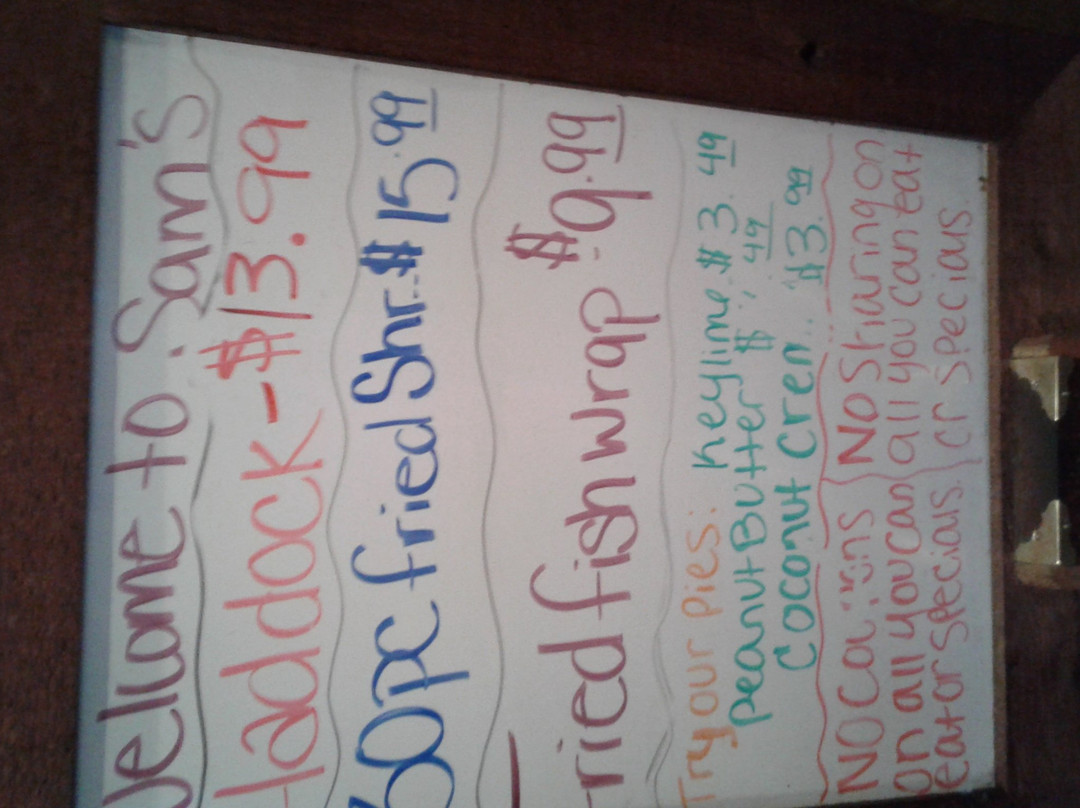 Wellome to. Sam's
Haddock -$13.99
60pc fried Shr..$15.99
Fried fish wrap $9.99
Try our pies: Keylime $3.49
PeanutButter $ .49
Coconut Crem.. $3.99
NO
On all you can
eat or specials.
No Sharing on
all you can eat
or specials